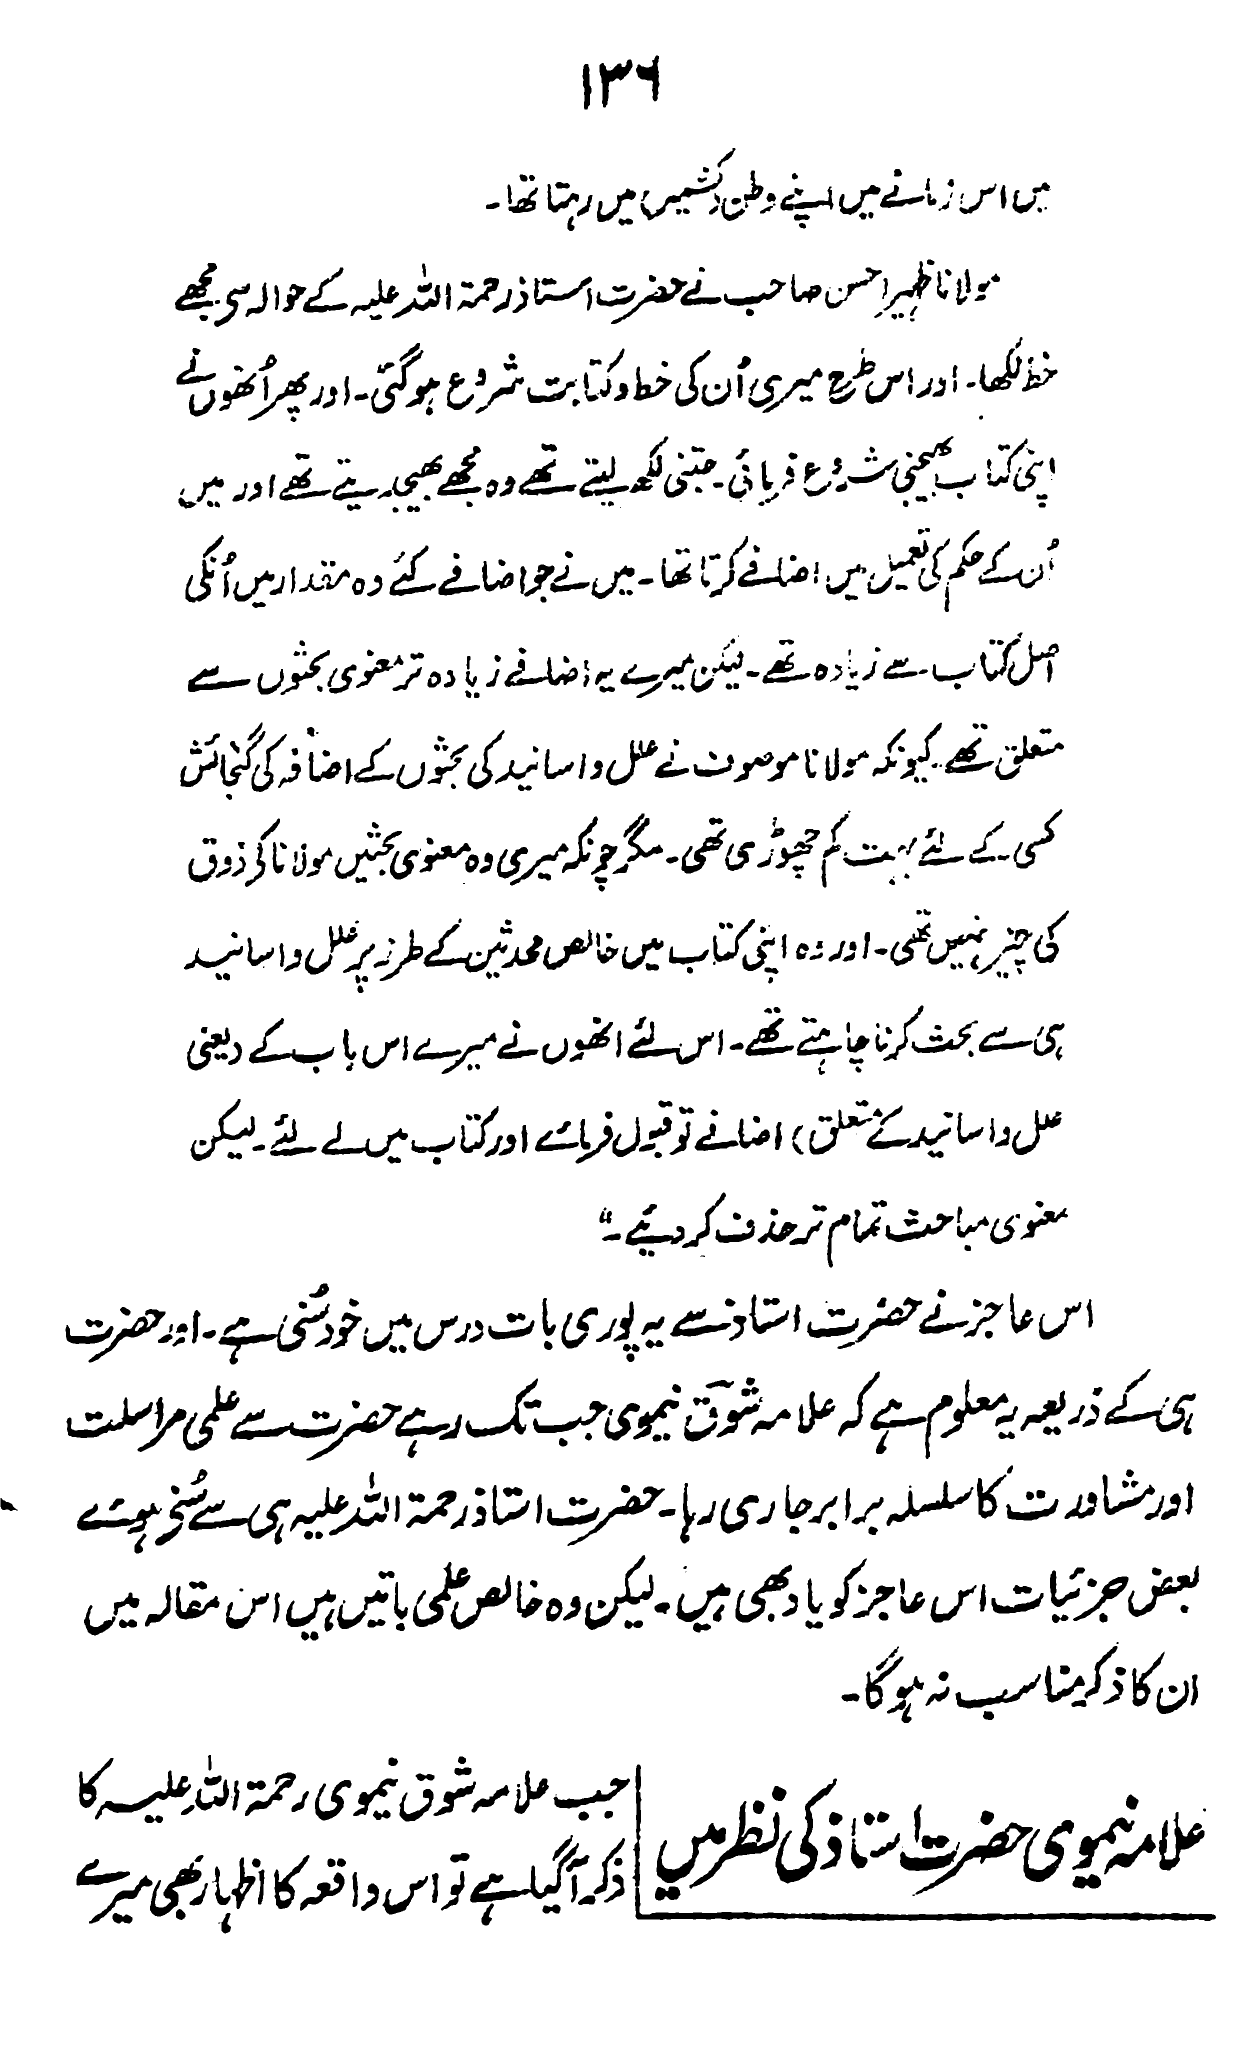 ۱۳۶
میں اس زمانے میں اپنے وطن (کشمیر) میں رہتا تھا۔
مولانا ظہیر احسن صاحب نے حضرت استاذ رحمۃ اللہ علیہ کے حوالہ سے مجھے
خط لکھا۔ اور اس طرح میری اُن کی خط و کتابت شروع ہوگئی۔ اور پھر اُنھوں نے
اپنی کتاب بھیجنی شروع فرمائی۔ جتنی لکھ لیتے تھے وہ مجھے بھیجدیتے تھے اور میں
اُن کے حکم کی تعمیل میں اضافے کرتا تھا۔ میں نے جو اضافے کئے وہ مقدار میں اُنکی
اصل کتاب سے زیادہ تھے۔ لیکن میرے یہ اضافے زیادہ تر معنوی بحثوں سے
متعلق تھے۔ کیونکہ مولانا موصوف نے علل و اسانید کی بحثوں کے اضافہ کی گنجائش
کسی کے لئے بہت کم چھوڑی تھی۔ مگر چونکہ میری وہ معنوی بحثیں مولانا کے ذوق
کی چیز نہیں تھی۔ اور وہ اپنی کتاب میں خالص محدثین کے طرز پر علل و اسانید
ہی سے بحث کرنا چاہتے تھے۔ اس لئے انھوں نے میرے اس باب کے (یعنی
علل و اسانید کے متعلق) اضافے تو قبول فرمائے اور کتاب میں لے لئے۔ لیکن
معنوی مباحث تمام تر حذف کر دئیے۔“
اس عاجز نے حضرت استاذ سے یہ پوری بات درس میں خود سُنی ہے۔ اور حضرت
ہی کے ذریعہ یہ معلوم ہے کہ علامہ شوق نیموی جب تک رہے حضرت سے علمی مراسلت
اور مشاورت کا سلسلہ برابر جاری رہا۔ حضرت استاذ رحمۃ اللہ علیہ ہی سے سُنی ہوئے
بعض جزئیات اس عاجز کو یاد بھی ہیں۔ لیکن وہ خالص علمی باتیں ہیں اس مقالہ میں
ان کا ذکر مناسب نہ ہوگا۔
علامہ نیموی حضرت استاذ کی نظر میں
جب علامہ شوق نیموی رحمۃ اللہ علیہ کا
ذکر آگیا ہے تو اس واقعہ کا اظہار بھی میرے